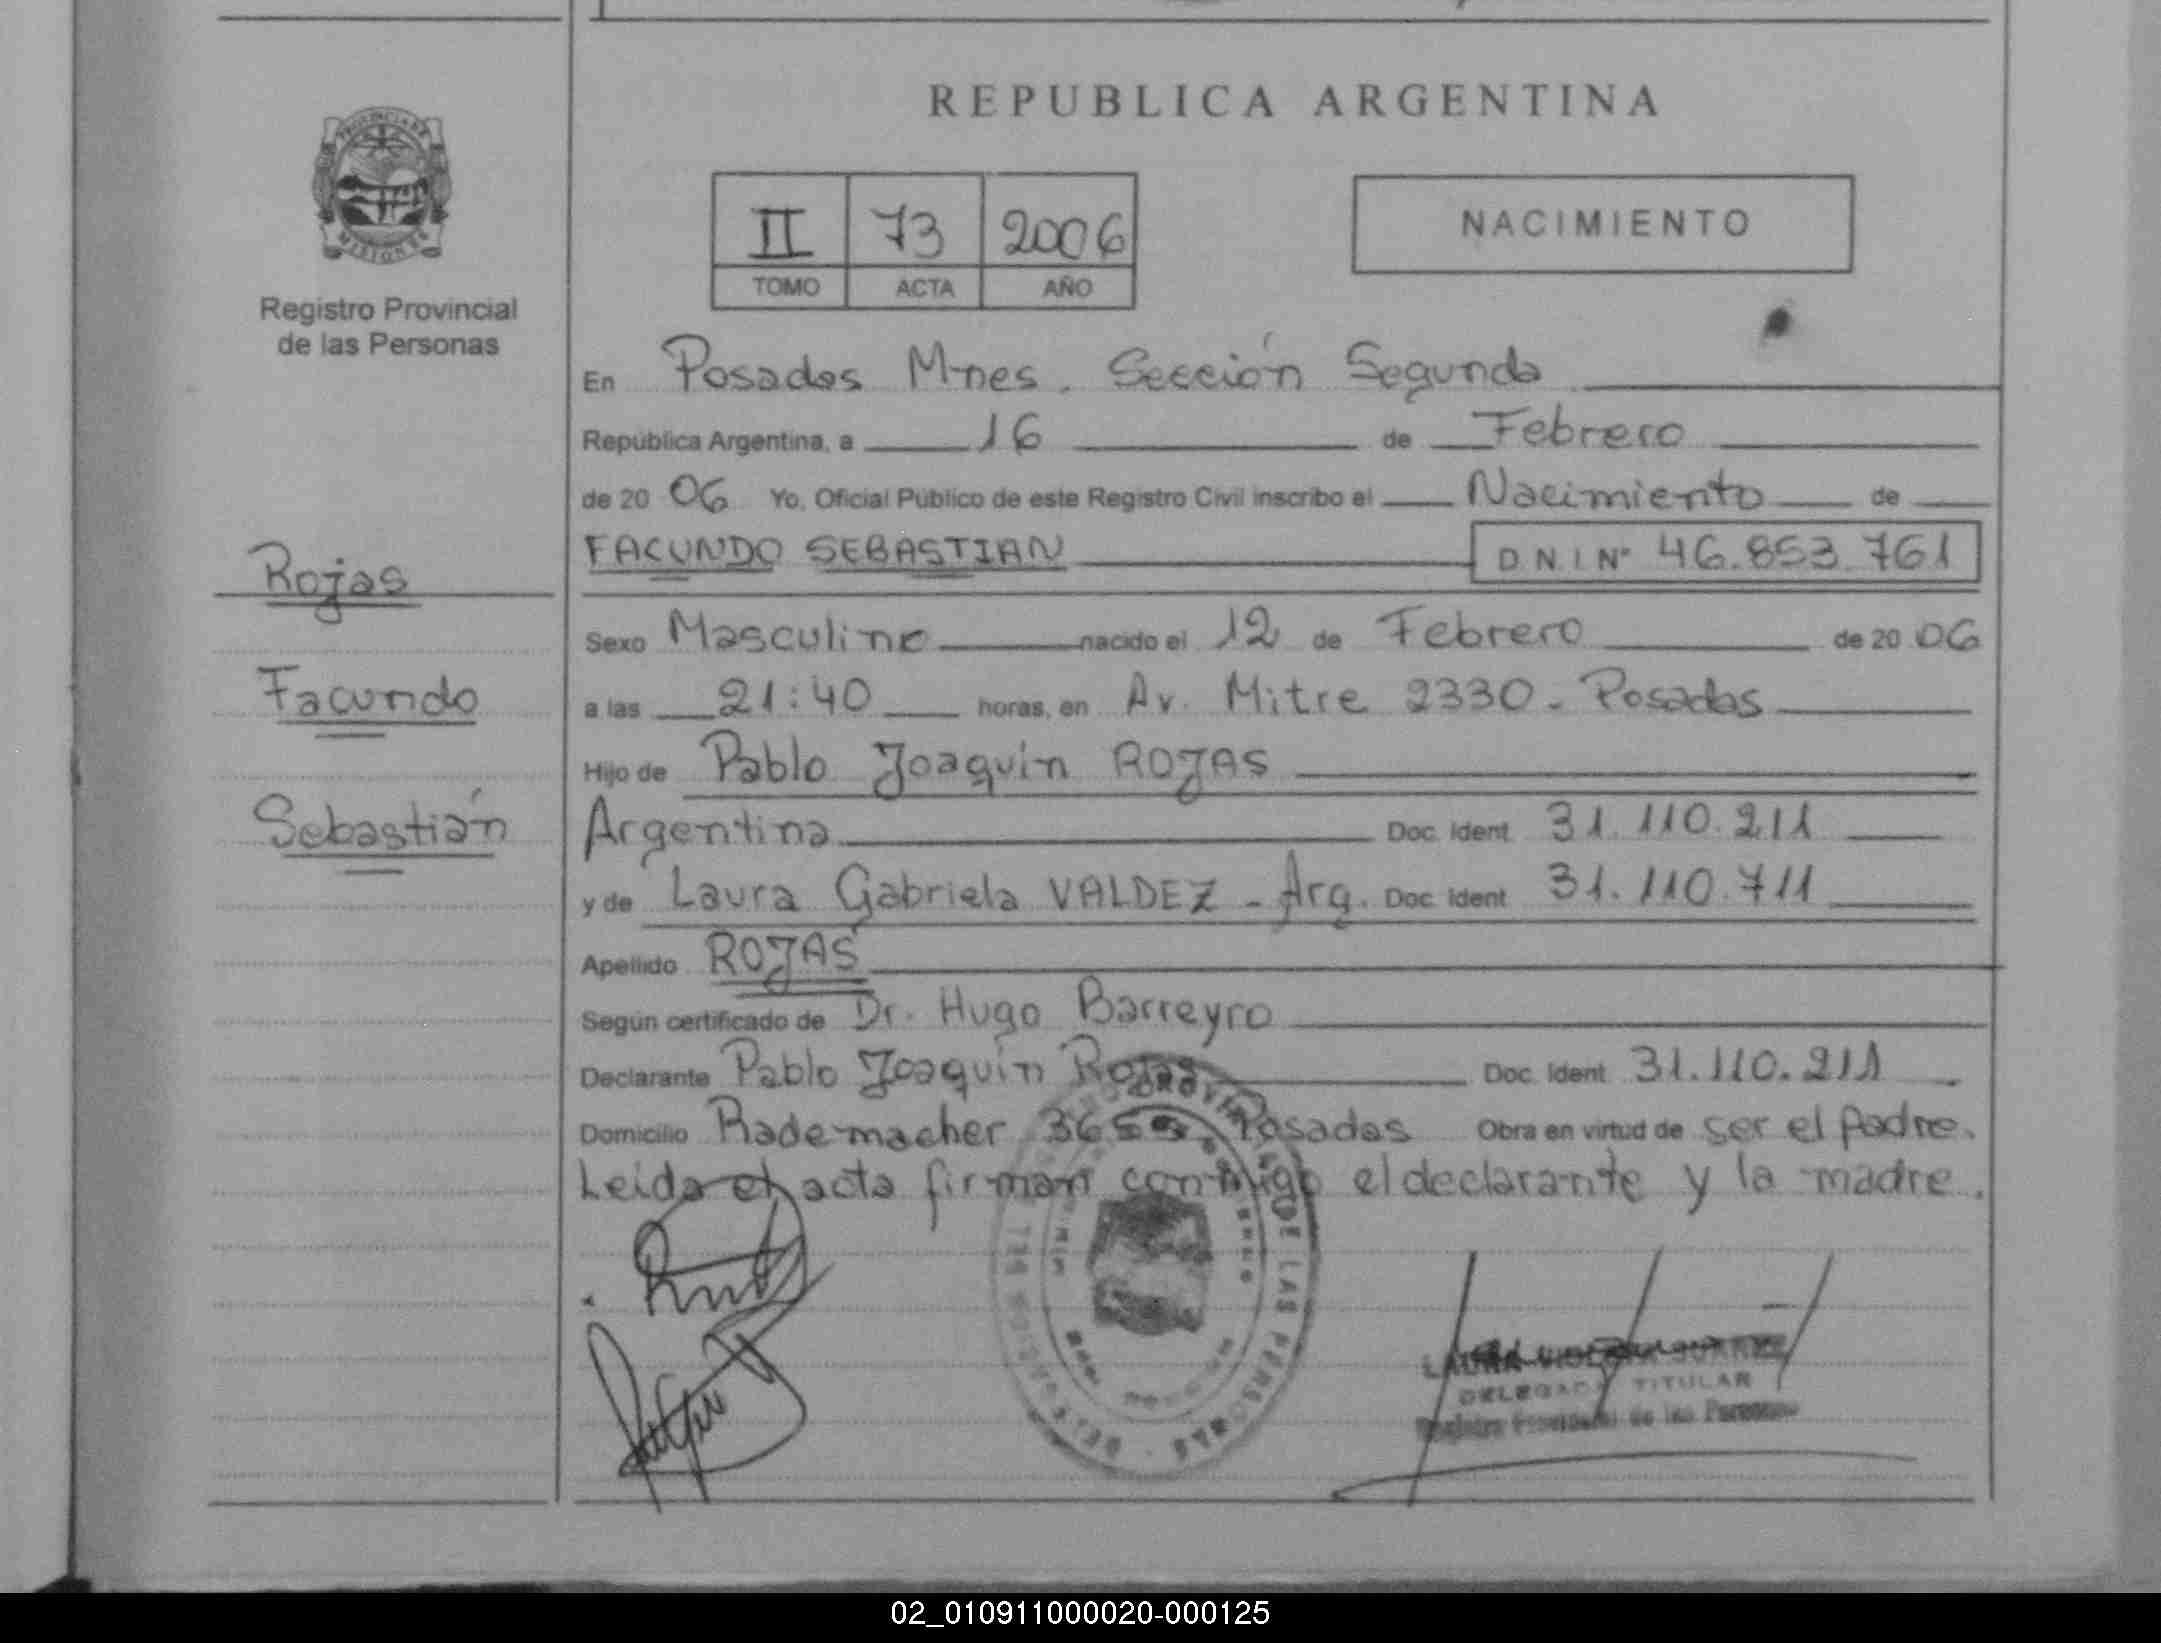 REPUBLICA ARGENTINA
PROVINCIA DE
MISIONES
Registro Provincial
de las Personas
II 73 2006
TOMO ACTA AÑO
NACIMIENTO
En Posadas Mnes. Sección Segunda
República Argentina, a 16 de Febrero
de 20 06 Yo, Oficial Público de este Registro Civil inscribo el Nacimiento de
FACUNDO SEBASTIAN D.N.I Nº 46.853.761
Rojas
Facundo
Sebastián
Sexo Masculino nacido el 12 de Febrero de 20 06
a las 21:40 horas, en Av. Mitre 2330 - Posadas
Hijo de Pablo Joaquín ROJAS
Argentina Doc. Ident. 31.110.211
y de Laura Gabriela VALDEZ - Arg. Doc. Ident. 31.110.711
Apellido ROJAS
Según certificado de Dr. Hugo Barreyro
Declarante Pablo Joaquín Rojas Doc. Ident. 31.110.211
Domicilio Rademacher Posadas Obra en virtud de ser el padre.
Leida el acta firman conmigo el declarante y la madre.
DE LAS PERSONAS
LAURA
DELEGADA TITULAR
Registro Provincial de las Personas
02_010911000020-000125